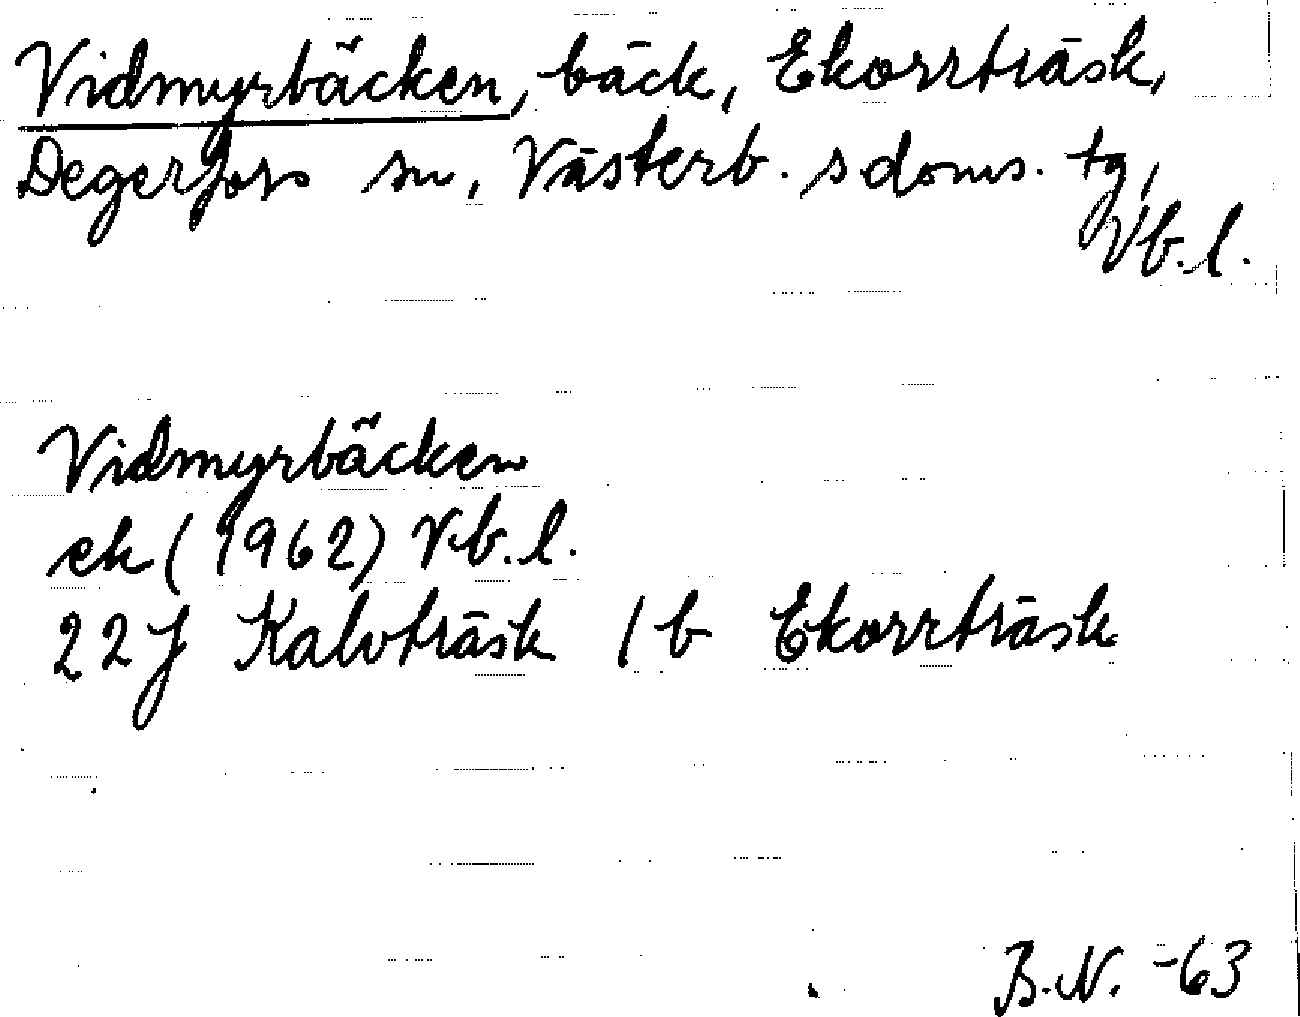 Vidmyrbäcken, bäck, Ekorrträsk,
Degerfors sn, Västerb. s.doms. tg,
Vb.l.
Vidmyrbäcken
ek (1962) Vb.l.
22J Kalvträsk 1b Ekorrträsk
B.N. -63